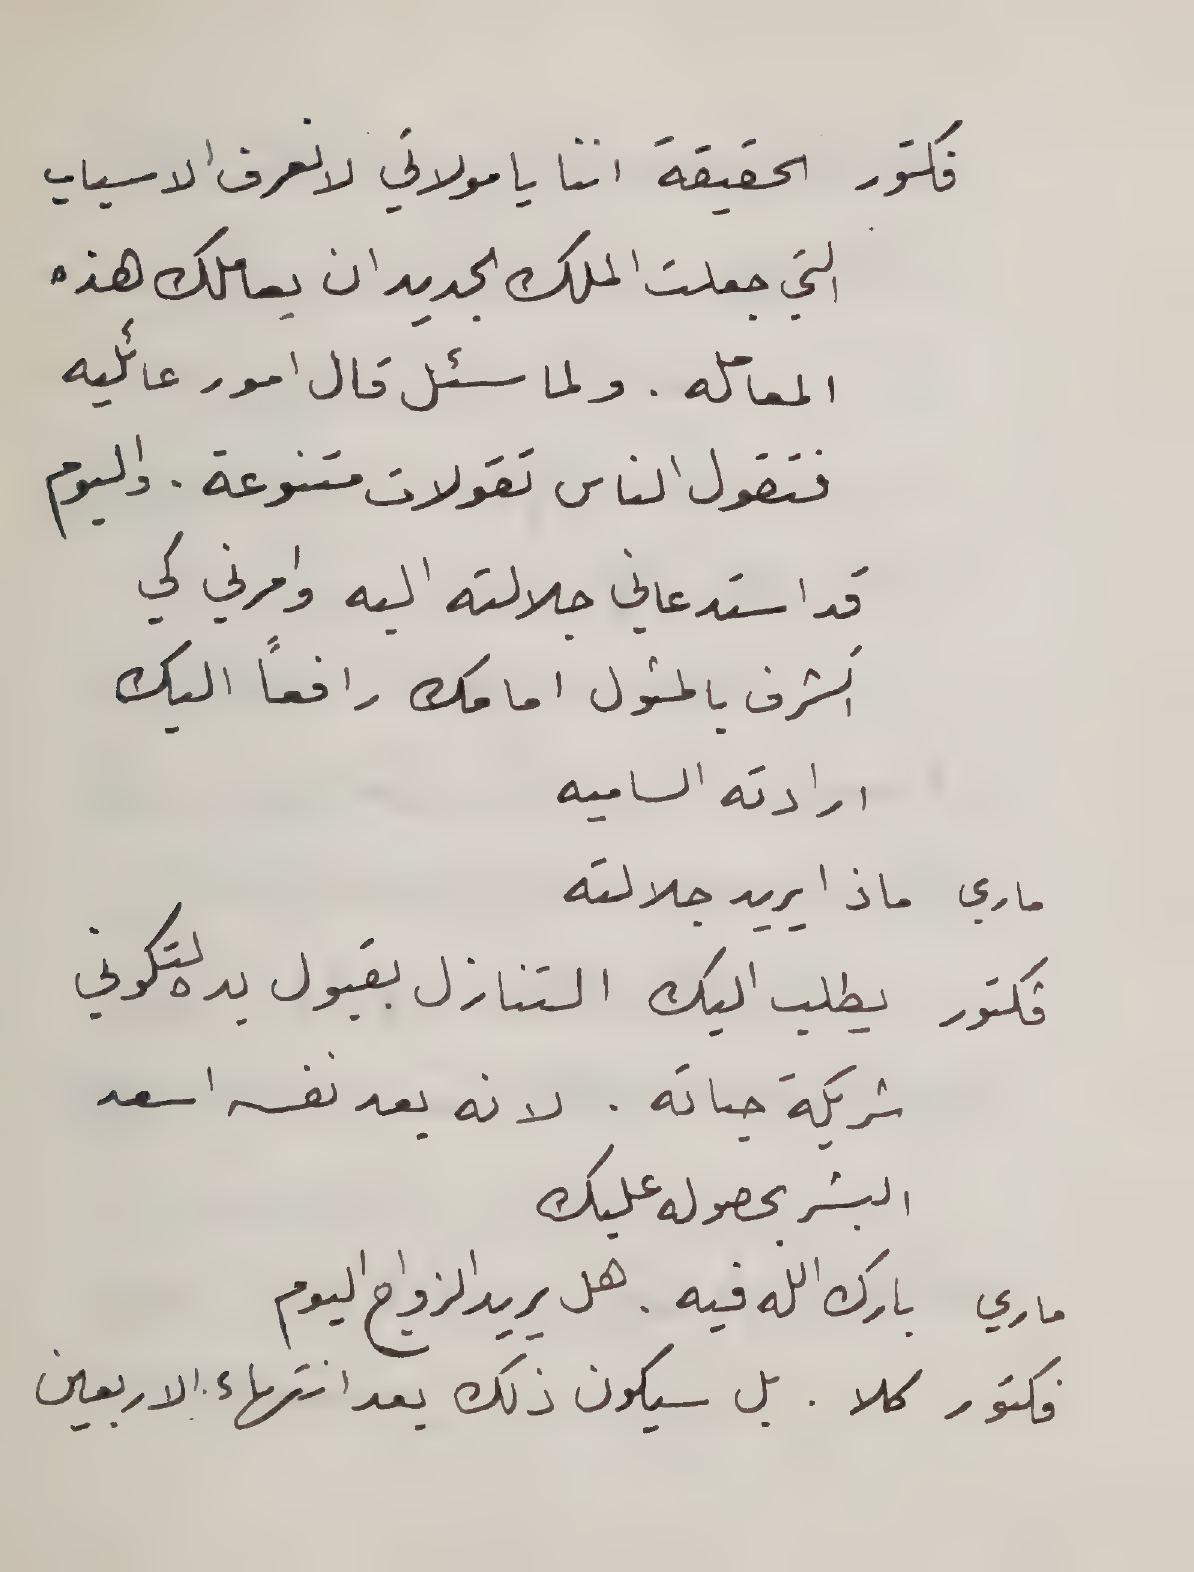 فكتور الحقيقة اننا يا مولاتي لا نعرف الاسباب
التي جعلت الملك الجديد ان يعاملك هذه
المعامله . ولما سئل قال امور عائليه
فتقول الناس تقولات متنوعة . واليوم
قد استدعاني جلالته اليه وامرني كي
اتشرف بالمثول امامك رافعاً اليك
ارادته الساميه
ماري ماذا يريد جلالته
فكتور يطلب اليك التنازل بقبول يده لتكوني
شريكة حياته . لانه يعد نفسه اسعد
البشر بحصوله عليك
ماري بارك الله فيه . هل يريد الزواج اليوم
فكتور كلا . بل سيكون ذلك بعد انتهاء الاربعين